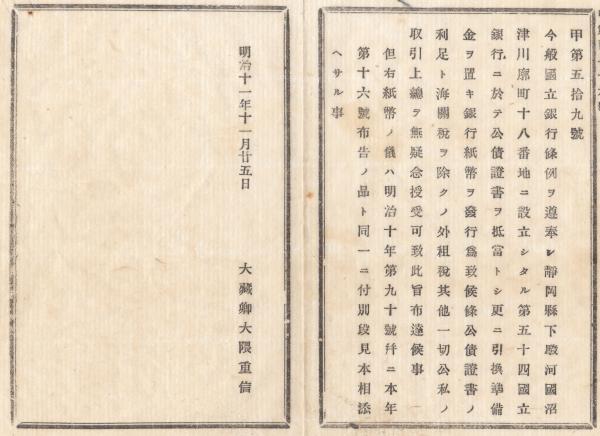 甲第五拾九號
今般國立銀行條例ヲ遵奉シ靜岡縣下駿河國沼
津川廓町十八番地ニ設立シタル第五十四國立
銀行ニ於テ公債證書ヲ抵當トシ更ニ引換準備
金ヲ置キ銀行紙幣ヲ發行爲致候條公債證書ノ
利足ト海關稅ヲ除クノ外租稅其他一切公私ノ
取引上總テ無疑念授受可致此旨布達候事
但右紙幣ノ儀ハ明治十年第九十號幷ニ本年
第十六號布告ノ品ト同一ニ付別段見本相添
ヘサル事
明治十一年十一月廿五日
大藏卿大隈重信